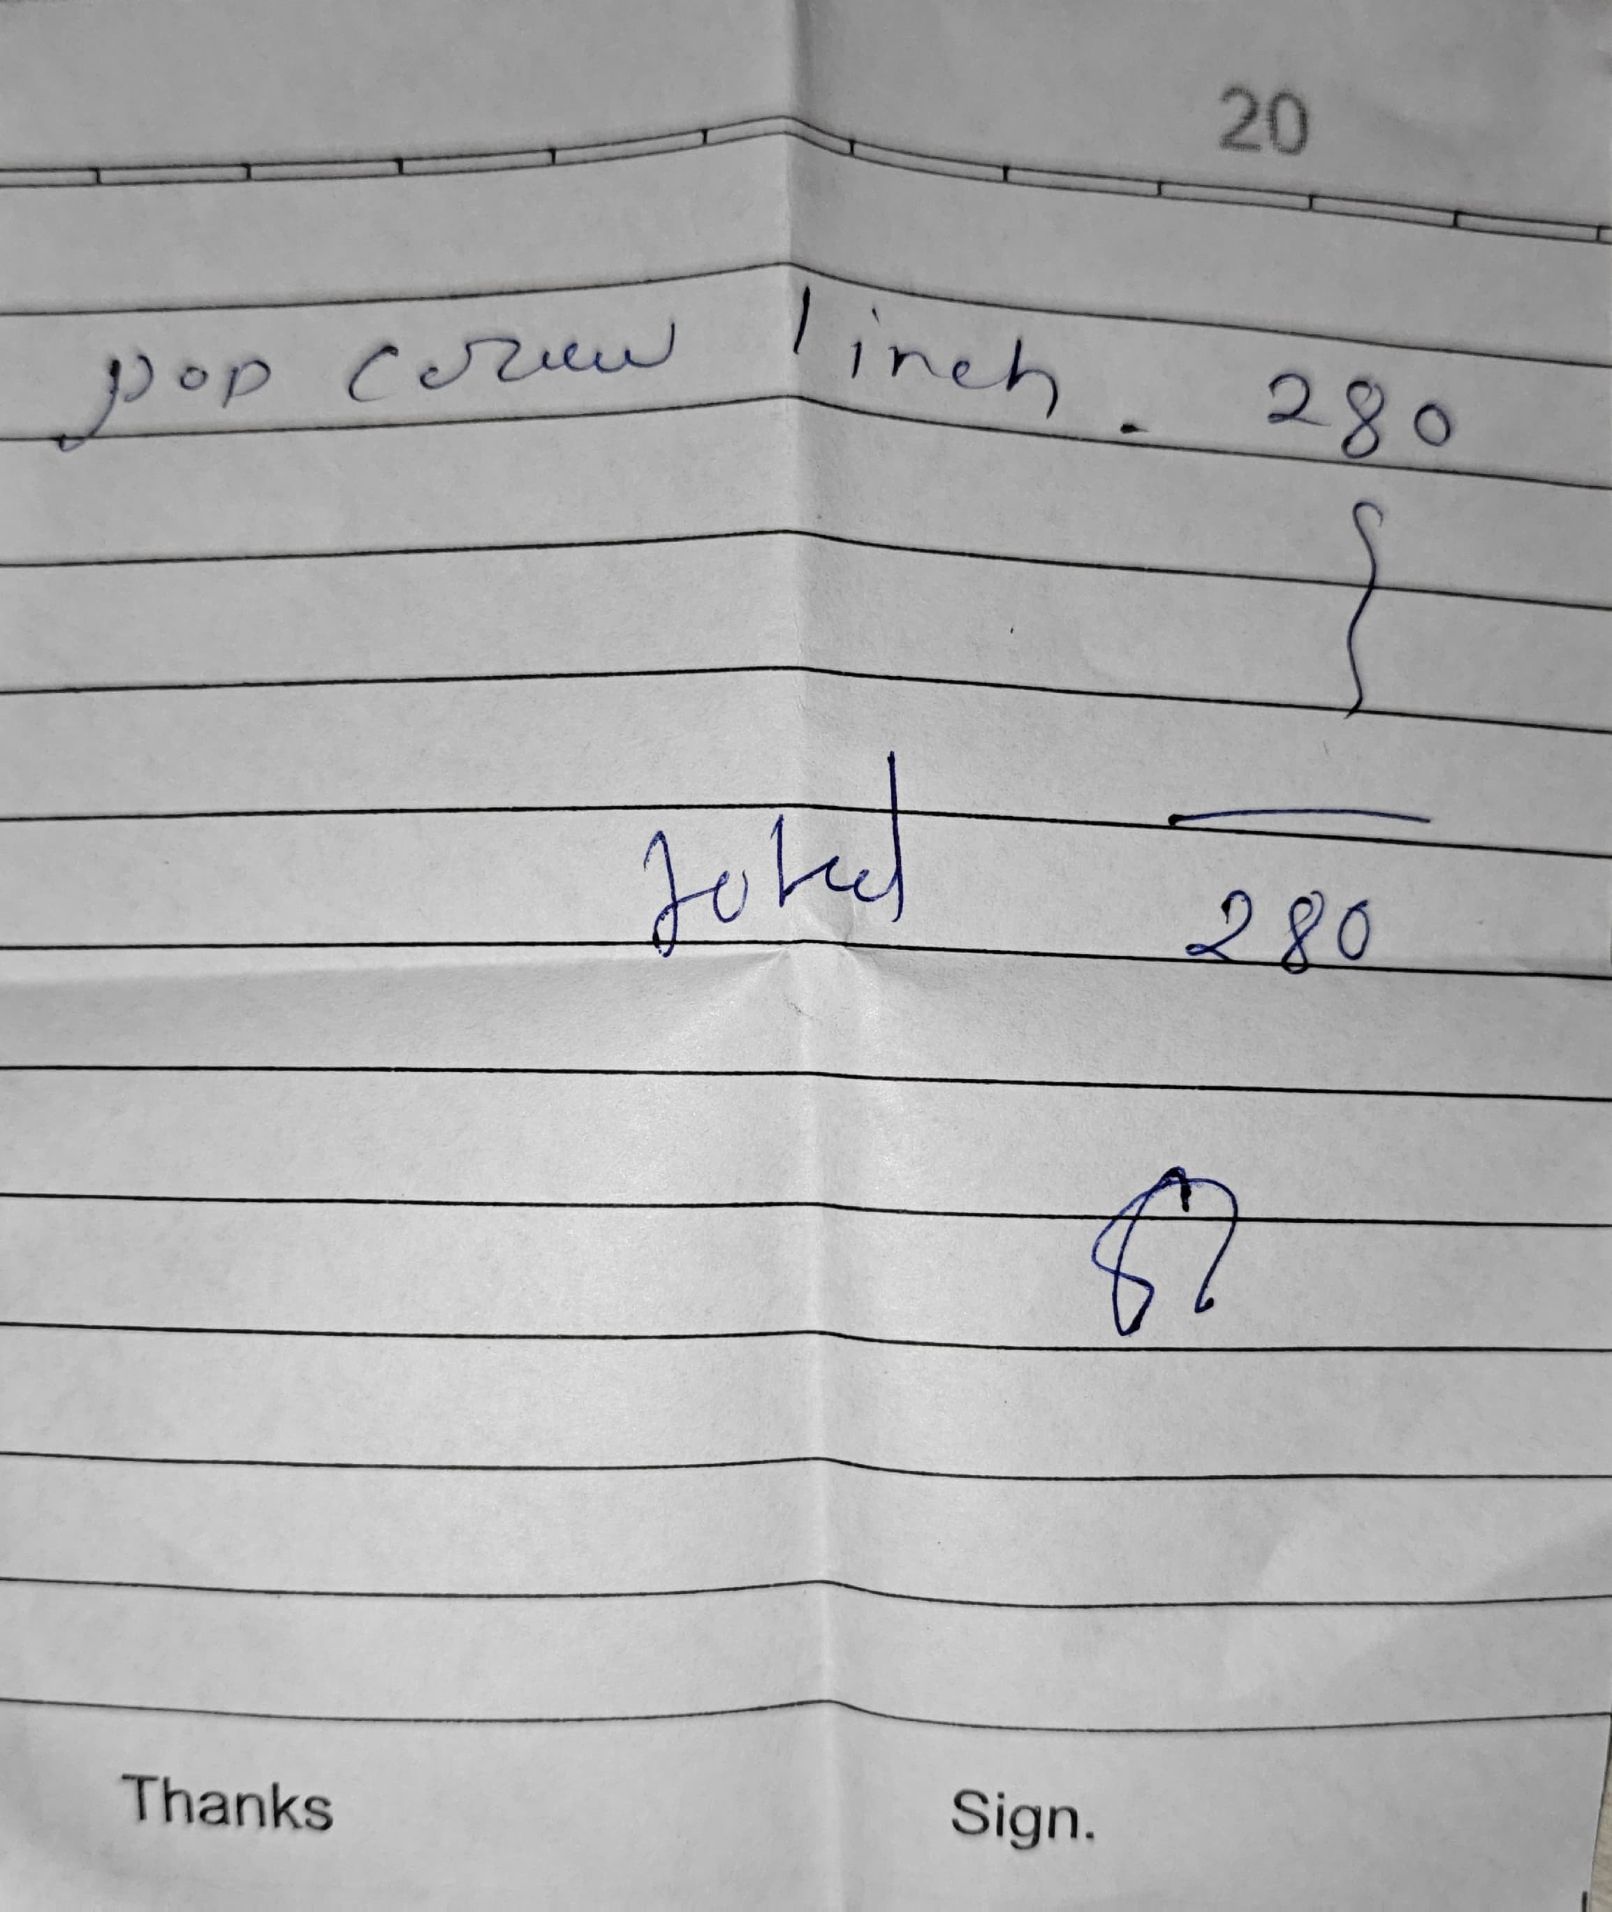 20
pop coreew 1 inch. 280
Total 280
Thanks Sign.